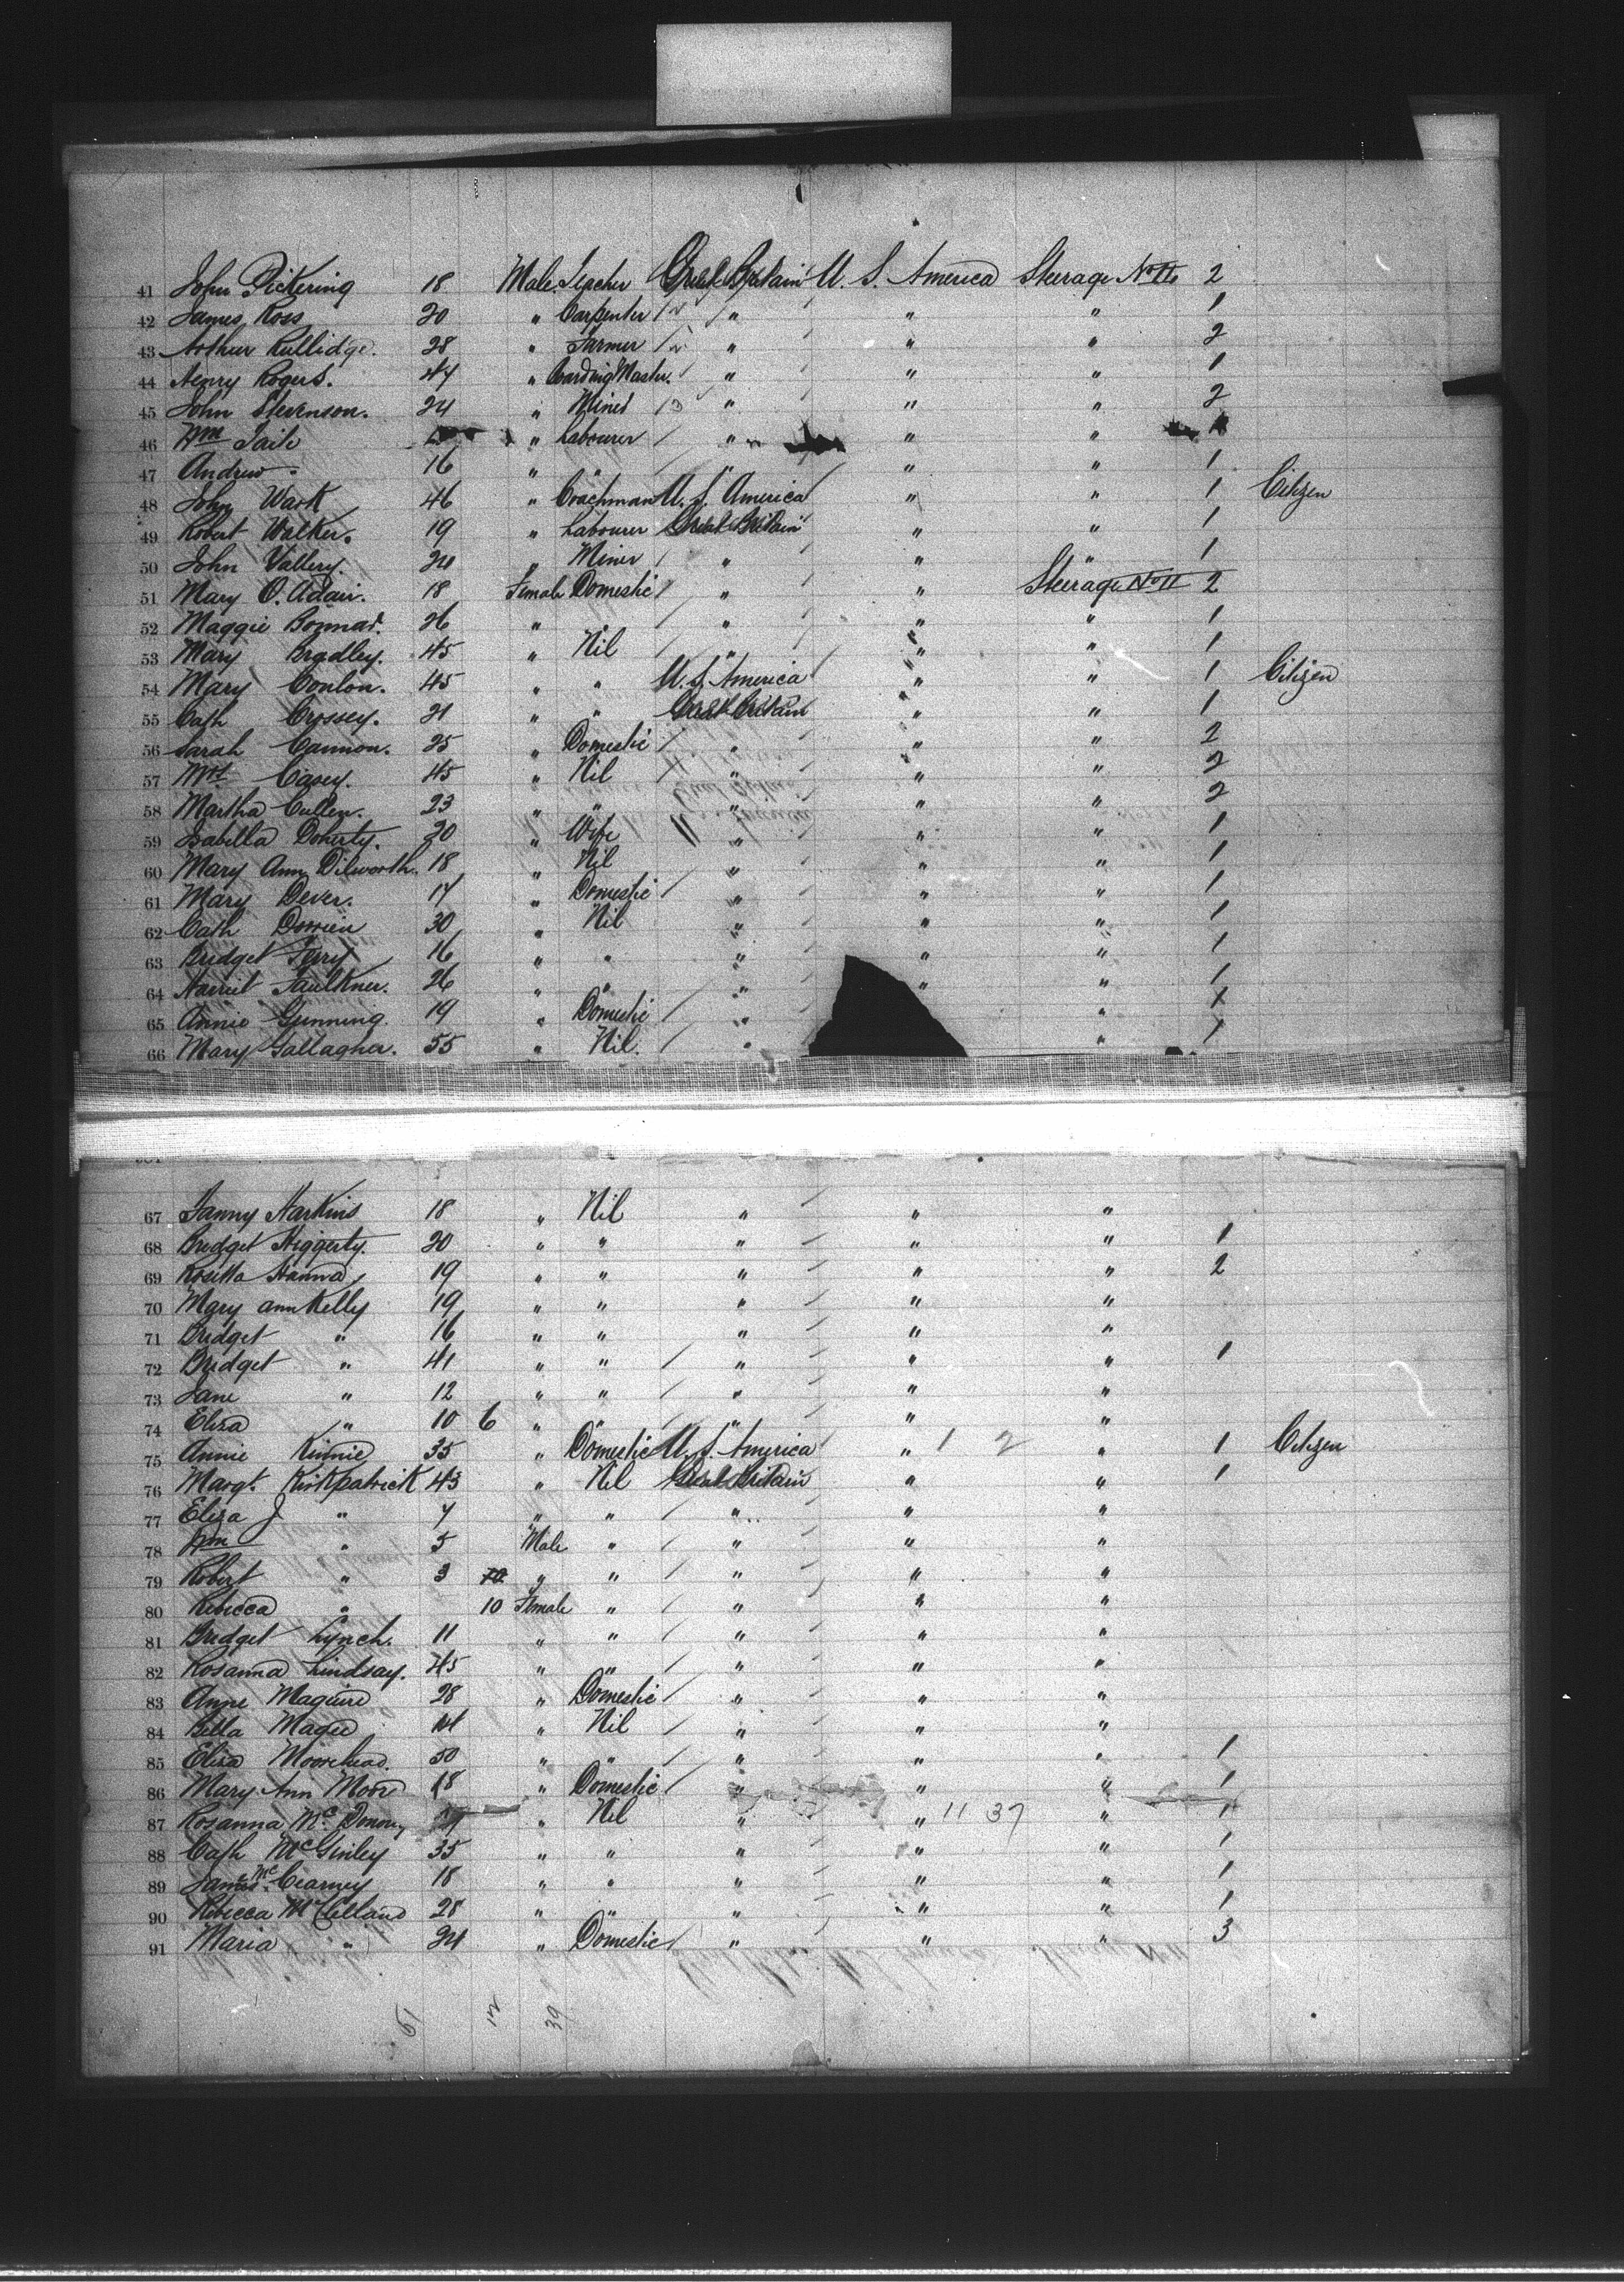 41 John Pickering 18 Male Teacher Great Britain U. S. America Steerage No II 2
42 James Ross 20 " Carpenter " " " 1
43 Arthur Rullidge. 28 " Farmer " " " 2
44 Henry Rogers. 47 " Boarding Master. " " " 1
45 John Stevenson. 24 " Miner 13 " " " 2
46 Wm " Labourer " " "
47 Andrew " 16 " " " " " 1
48 John Wark 46 " Coachman U. S. America " " 1 Citizen
49 Robert Walker. 19 " Labourer Great Britain " " 1
50 John Vallery. 24 " Miner " " " 1
51 Mary O. Adair. 18 Female Domestic " " Steerage No II 2
52 Maggie Bonnar. 26 " " " " " 1
53 Mary Bradley. 45 " Nil " " " 1
54 Mary Conlon. 45 " " U. S. America " " 1 Citizen
55 Cath Crossey. 21 " " Great Britain " " 1
56 Sarah Cannon. 25 " Domestic " " " 2
57 Mrs Casey. 45 " Nil " " " 2
58 Martha Cullen. 23 " " " " " 2
59 Isabella Doherty. 30 " Wife " " " 1
60 Mary Ann Dilworth. 18 " Nil " " " 1
61 Mary Dever. 17 " Domestic " " " 1
62 Cath 30 " Nil " " " 1
63 Bridget Ferry 16 " " " " " 1
64 Harriet Faulkner. 26 " " " " " 1
65 Annie Gunning. 19 " Domestic " " 1
66 Mary Gallagher. 55 " Nil. " " 1
67 Fanny Harkins 18 " Nil " " "
68 Bridget Heggerty. 20 " " " " " 1
69 Rosetta Hanna 19 " " " " " 2
70 Mary ann Kelly 19 " " " " "
71 Bridget " 16 " " " " "
72 Bridget " 41 " " " " " 1
73 Jane " 12 " " " " "
74 Eliza " 10 6 " " " " "
75 Annie Kinnie 35 " Domestic U. S. America " 1 2 " 1 Citizen
76 Margt. Kirkpatrick 43 " Nil Great Britain " " 1
77 Eliza J " 7 " " " " "
78 Wm " 5 Male " " " "
79 Robert " 3 10 " " " " "
80 Rebecca " 10 Female " " " "
81 Bridget Lynch. 11 " " " " "
82 Rosanna Lindsay. 45 " " " " "
83 Anne Maguire 28 " Domestic " " "
84 Bella Magee " Nil " " "
85 Eliza Moorehead. 50 " " " " " 1
86 Mary Ann Moor 18 " Domestic " " " 1
87 Rosanna Mc " Nil " " 11 37 " 1
88 Cath McGinley 35 " " " " " 1
89 James McCearney 18 " " " " " 1
90 Rebecca McClelland 28 " " " " " 1
91 Maria " 24 " Domestic " " " 3
51 12 39